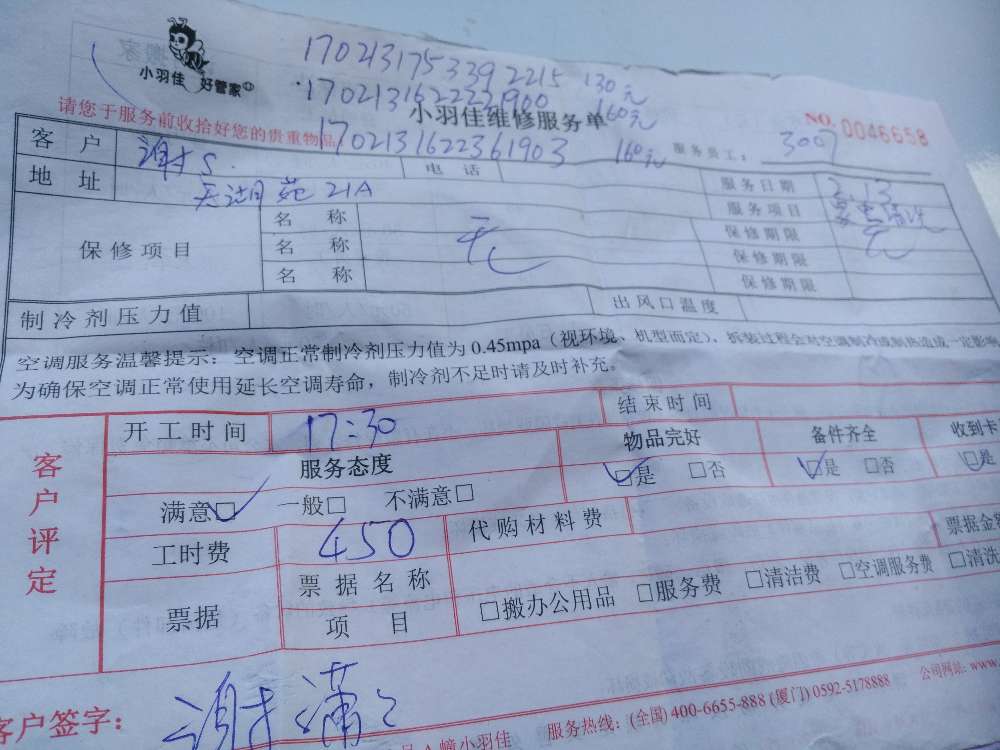 小羽佳 好管家
17021317533922​15 130元
1702131622221900 160元
小羽佳维修服务单
请您于服务前收拾好您的贵重物品
1702131622361903 160元
服务员工: 3007
NO. 0046658
客户 谢S. 电话 服务日期 2.13
地址 天湖苑 21A 服务项目 家电清洗
保修项目 名称 无 保修期限 无
名称 保修期限
名称 保修期限
制冷剂压力值 出风口温度
空调服务温馨提示：空调正常制冷剂压力值为 0.45mpa（视环境、机型而定）。拆装过程会对空调制冷剂制热造成一定影响
为确保空调正常使用延长空调寿命，制冷剂不足时请及时补充。
客户评定
开工时间 17:30 结束时间
服务态度 物品完好 备件齐全 收到卡
满意□ 一般□ 不满意□ □是 □否 □是 □否 □是
工时费 450 代购材料费 票据金
票据 票据名称
项目 □搬办公用品 □服务费 □清洁费 □空调服务费 □清洗
客户签字：谢潇之
服务热线：(全国) 400-6655-888 (厦门) 0592-5178888 公司网址: www.
小羽佳